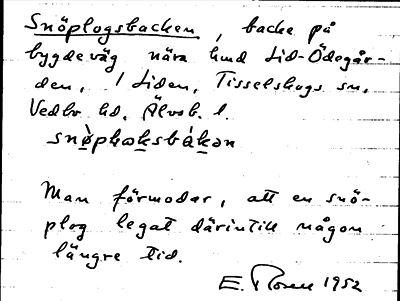 Snöplogsbacken, backe på
bygdeväg nära hmd Lid-Ödegår-
den, / Liden, Tisselskogs sn,
Vedbo hd, Älvsb. l.
snø̀pḷoksbákən
Man förmodar, att en snö-
plog legat därintill någon
längre tid.
E. Rosell 1952